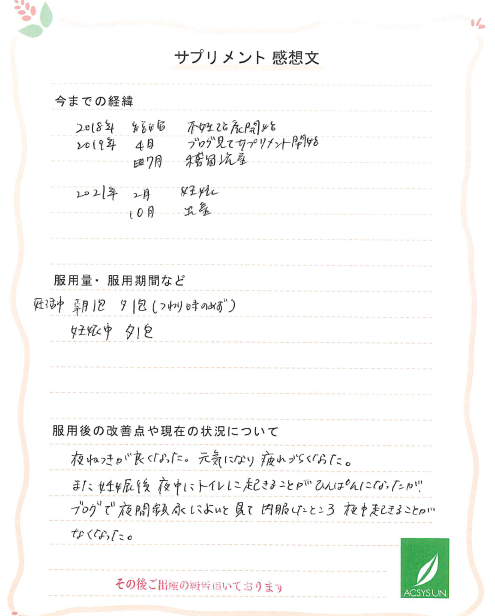 サプリメント 感想文
今までの経緯
2018年 結婚 不妊治療開始
2019年 4月 ブログ見てサプリメント開始
7月 稽留流産
2021年 2月 妊娠
10月 出産
服用量・服用期間など
妊活中 朝1包 夕1包(つわり時のめず)
妊娠中 夕1包
服用後の改善点や現在の状況について
夜ねつきが良くなった。元気になり疲れづらくなった。
また妊娠後夜中にトイレに起きることがひんぱんになったが、
ブログで夜間頻尿によいと見て内服したところ夜中起きることが
なくなった。
その後ご出産の報告頂いております
ACSYSUN